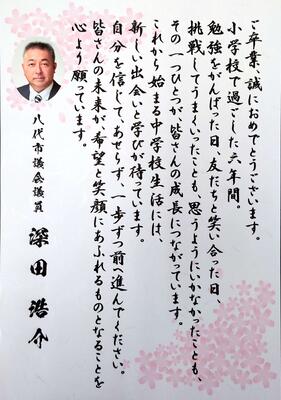 ご卒業、誠におめでとうございます。
小学校で過ごした六年間。
勉強をがんばった日、友だちと笑い合った日、
挑戦してうまくいったことも、思うようにいかなかったことも、
その一つひとつが皆さんの成長につながっています。
これから始まる中学校生活には、
新しい出会いと学びが待っています。
自分を信じて、あせらず、一歩ずつ前へ進んでください。
皆さんの未来が、希望と笑顔にあふれるものとなることを
心より願っています。
八代市議会議員
深田浩介